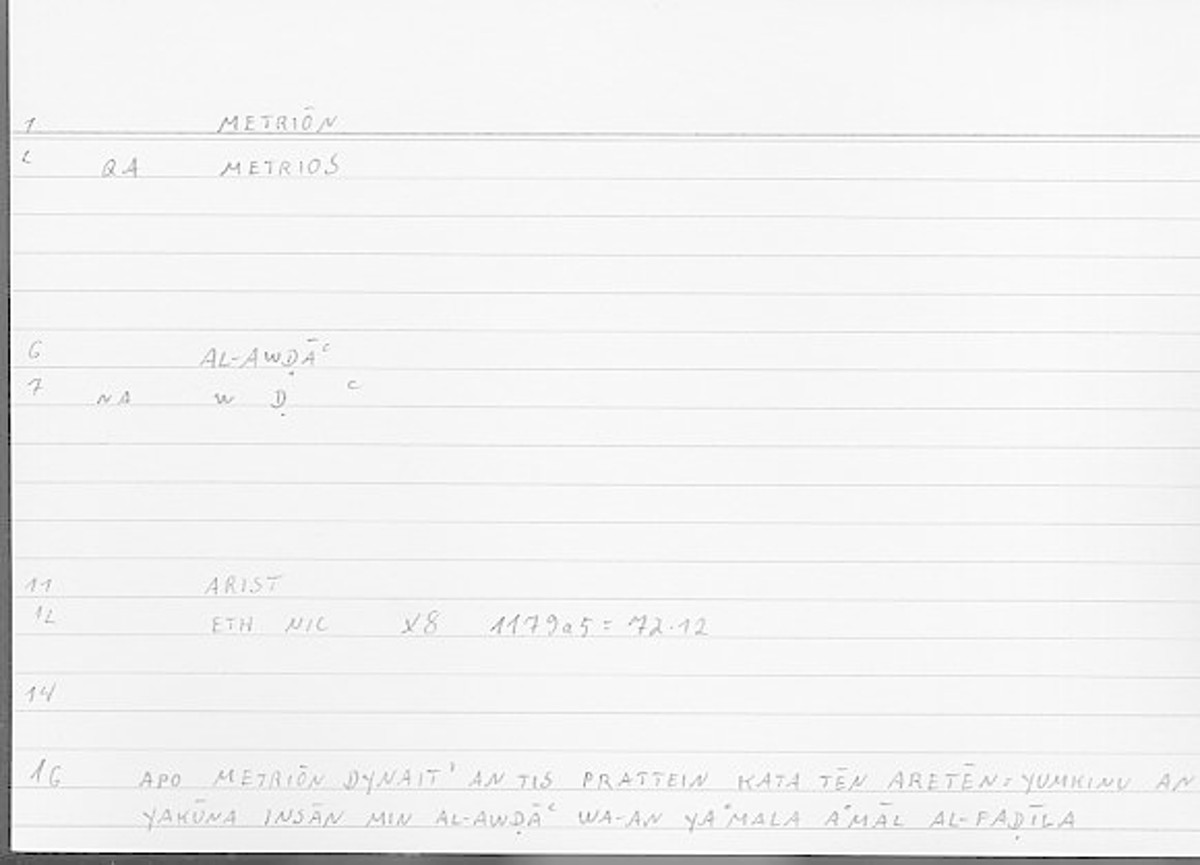 1 METRIŌN
2 QA METRIOS
6 AL-AWḌĀʿ
7 NA W Ḍ ʿ
11 ARIST
12 ETH NIC X8 1179a5 = 72.12
14
16 APO METRIŌN DYNAIT' AN TIS PRATTEIN KATA TĒN ARETĒN = YUMKINU AN
YAKŪNA INSĀN MIN AL-AWḌĀʿ WA-AN YAʿMALA AʿMĀL AL-FAḌĪLA